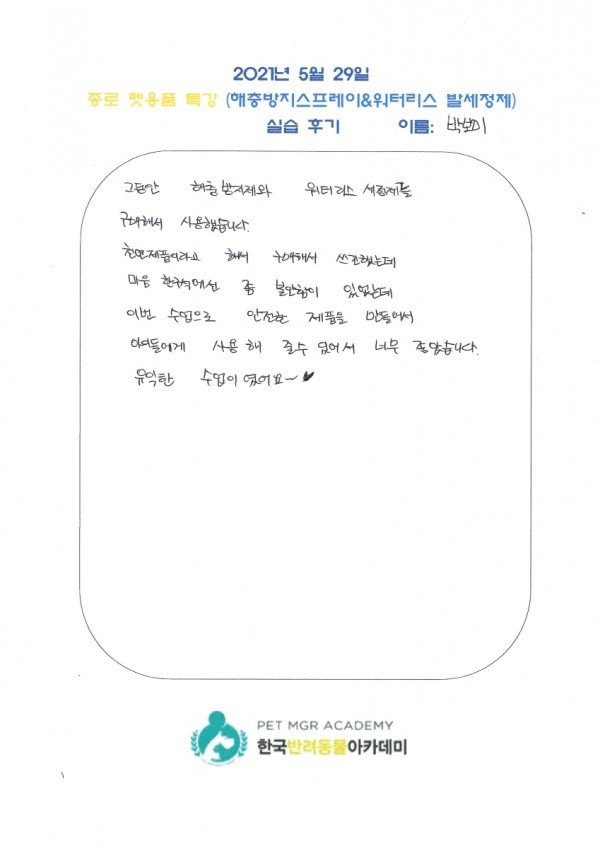 2021년 5월 29일
종로 펫용품 특강 (해충방지스프레이&워터리스 발세정제)
실습 후기 이름: 박보미
그동안 해충방지제와 워터리스 세정제를
구매해서 사용했습니다.
천연제품이라고 해서 구매해서 쓰긴했는데
마음 한구석에선 좀 불안함이 있었는데
이번 수업으로 안전한 제품을 만들어서
아이들에게 사용 해 줄수 있어서 너무 좋았습니다.
유익한 수업이였어요~
PET MGR ACADEMY
한국반려동물아카데미